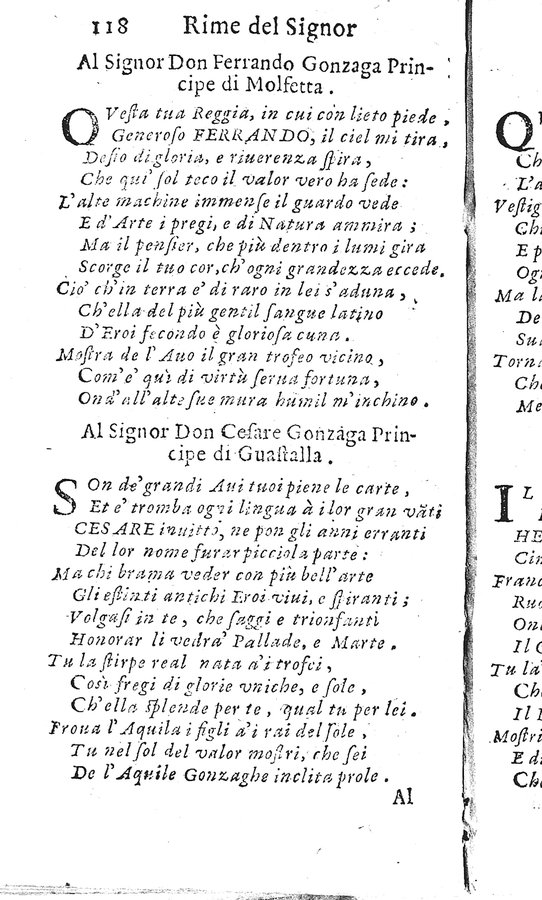 118 Rime del Signor
Al Signor Don Ferrando Gonzaga Prin-
cipe di Molfetta.
QVeſta tua Reggia, in cui con lieto piede,
Generoſo FERRANDO, il ciel mi tira,
Deſio di gloria, e riuerenza ſpira,
Che qui ſol teco il valor vero ha ſede:
L'alte machine immenſe il guardo vede
E d'Arte i pregi, e di Natura ammira;
Ma il penſier, che più dentro i lumi gira
Scorge il tuo cor, ch'ogni grandezza eccede.
Ciò ch'in terra e' di raro in lei s'aduna,
Ch'ella del più gentil ſangue latino
D'Eroi fecondo è glorioſa cuna.
Moſtra de l'Auo il gran trofeo vicino,
Com'e' quì di virtù ſerua fortuna,
Ond'all'alte ſue mura humil m'inchino.
Al Signor Don Ceſare Gonzaga Prin-
cipe di Guaſtalla.
SOn de' grandi Aui tuoi piene le carte,
Et e' tromba ogni lingua à i lor gran vāti
CESARE inuitto, ne pon gli anni erranti
Del lor nome furar picciola parte:
Ma chi brama veder con più bell'arte
Gli eſtinti antichi Eroi viui, e ſpiranti;
Volgaſi in te, che ſaggi e trionfanti
Honorar li vedrà Pallade, e Marte.
Tu la ſtirpe real nata a' i trofei,
Così fregi di glorie vniche, e ſole,
Ch'ella ſplende per te, qual tu per lei.
Proua l'Aquila i figli a' i rai del ſole,
Tu nel ſol del valor moſtri, che ſei
De l'Aquile Gonzaghe inclita prole.
Al
Q
Ch
L'a
Veſtig
Chi
E p
Ogn
Ma la
De
Su
Torna
Che
Me
IL
HE
Cin
Franc
Ruo
On
Il C
Tu la
Ch
Il I
Moſtri
E di
Che